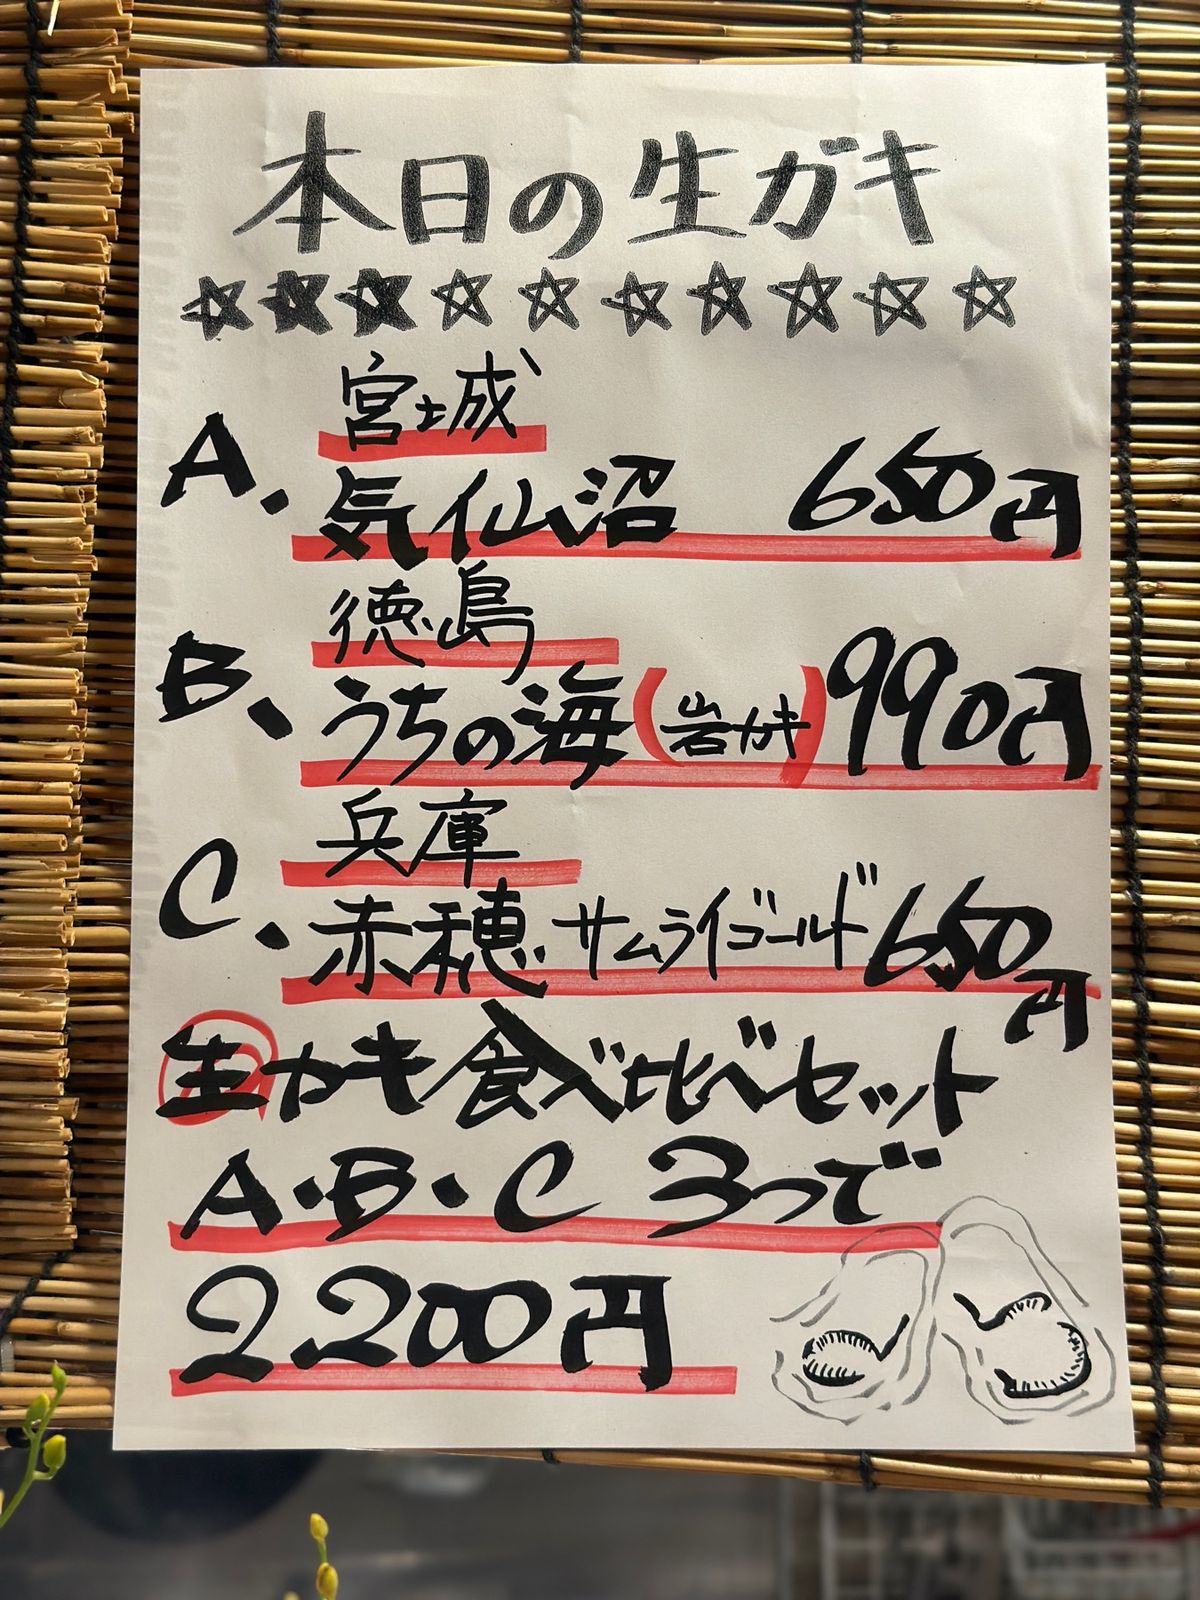 本日の生ガキ
☆☆☆☆☆☆☆☆☆☆
宮城
A. 気仙沼 650円
徳島
B. うちの海(岩カキ) 990円
兵庫
C. 赤穂 サムライゴールド 650円
生カキ食べ比べセット
A・B・C 3つで
2,200円